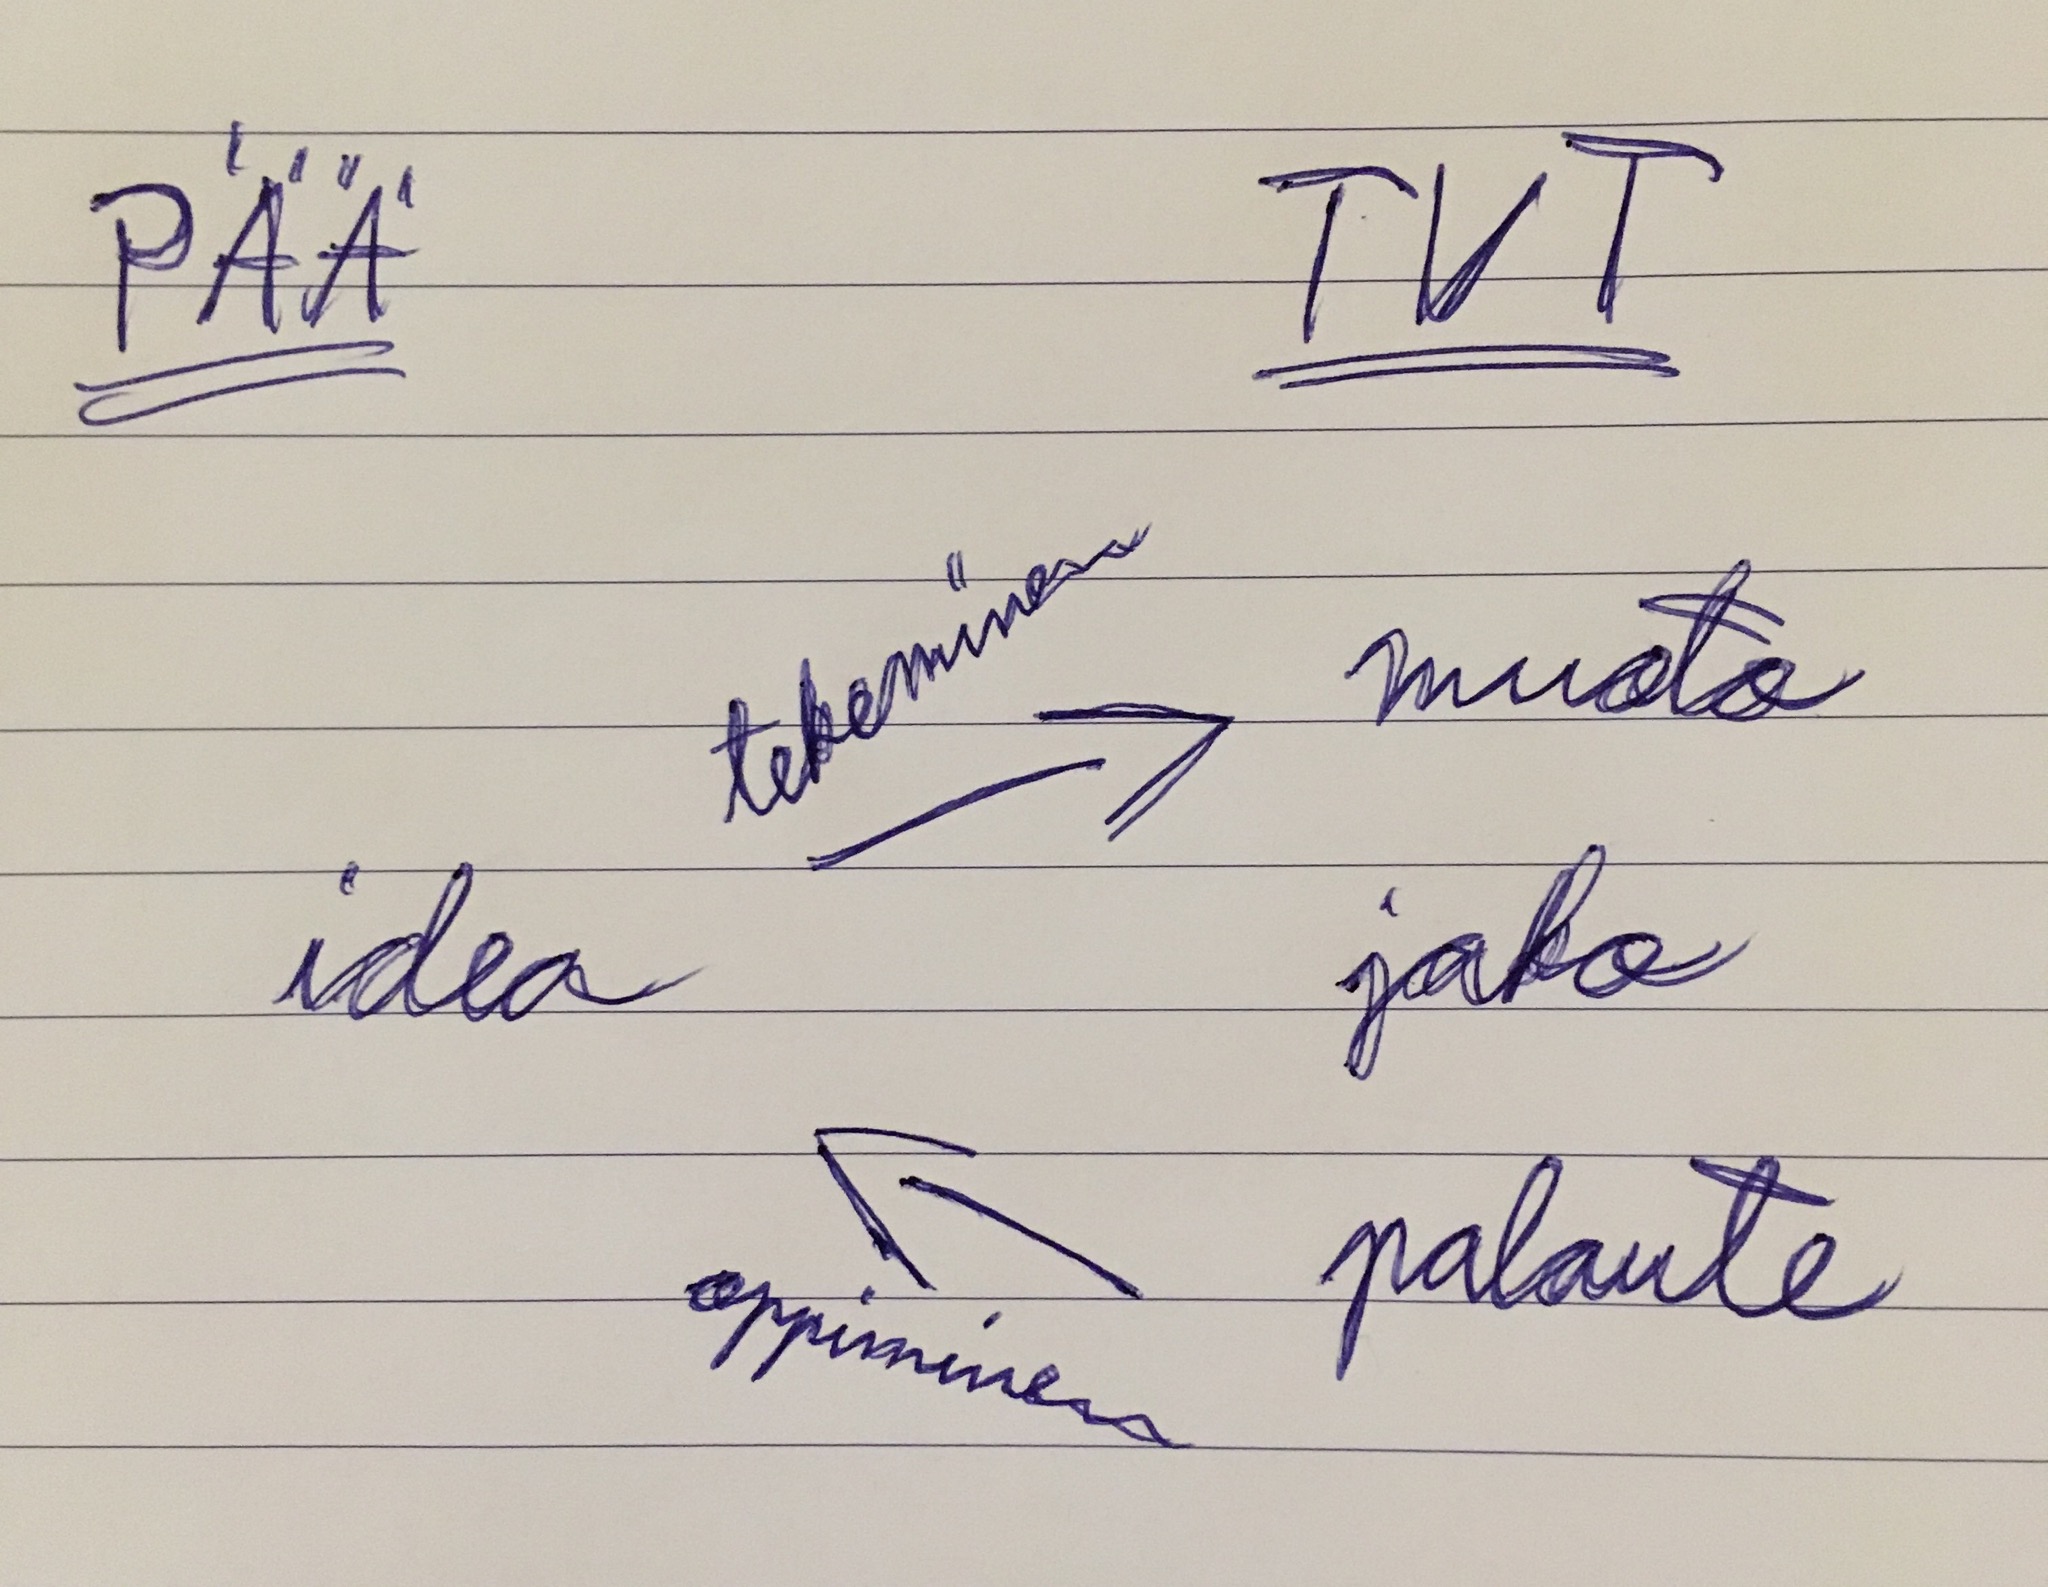 PÄÄ TVT
tekeminen
muoto
idea
jako
palaute
oppiminen